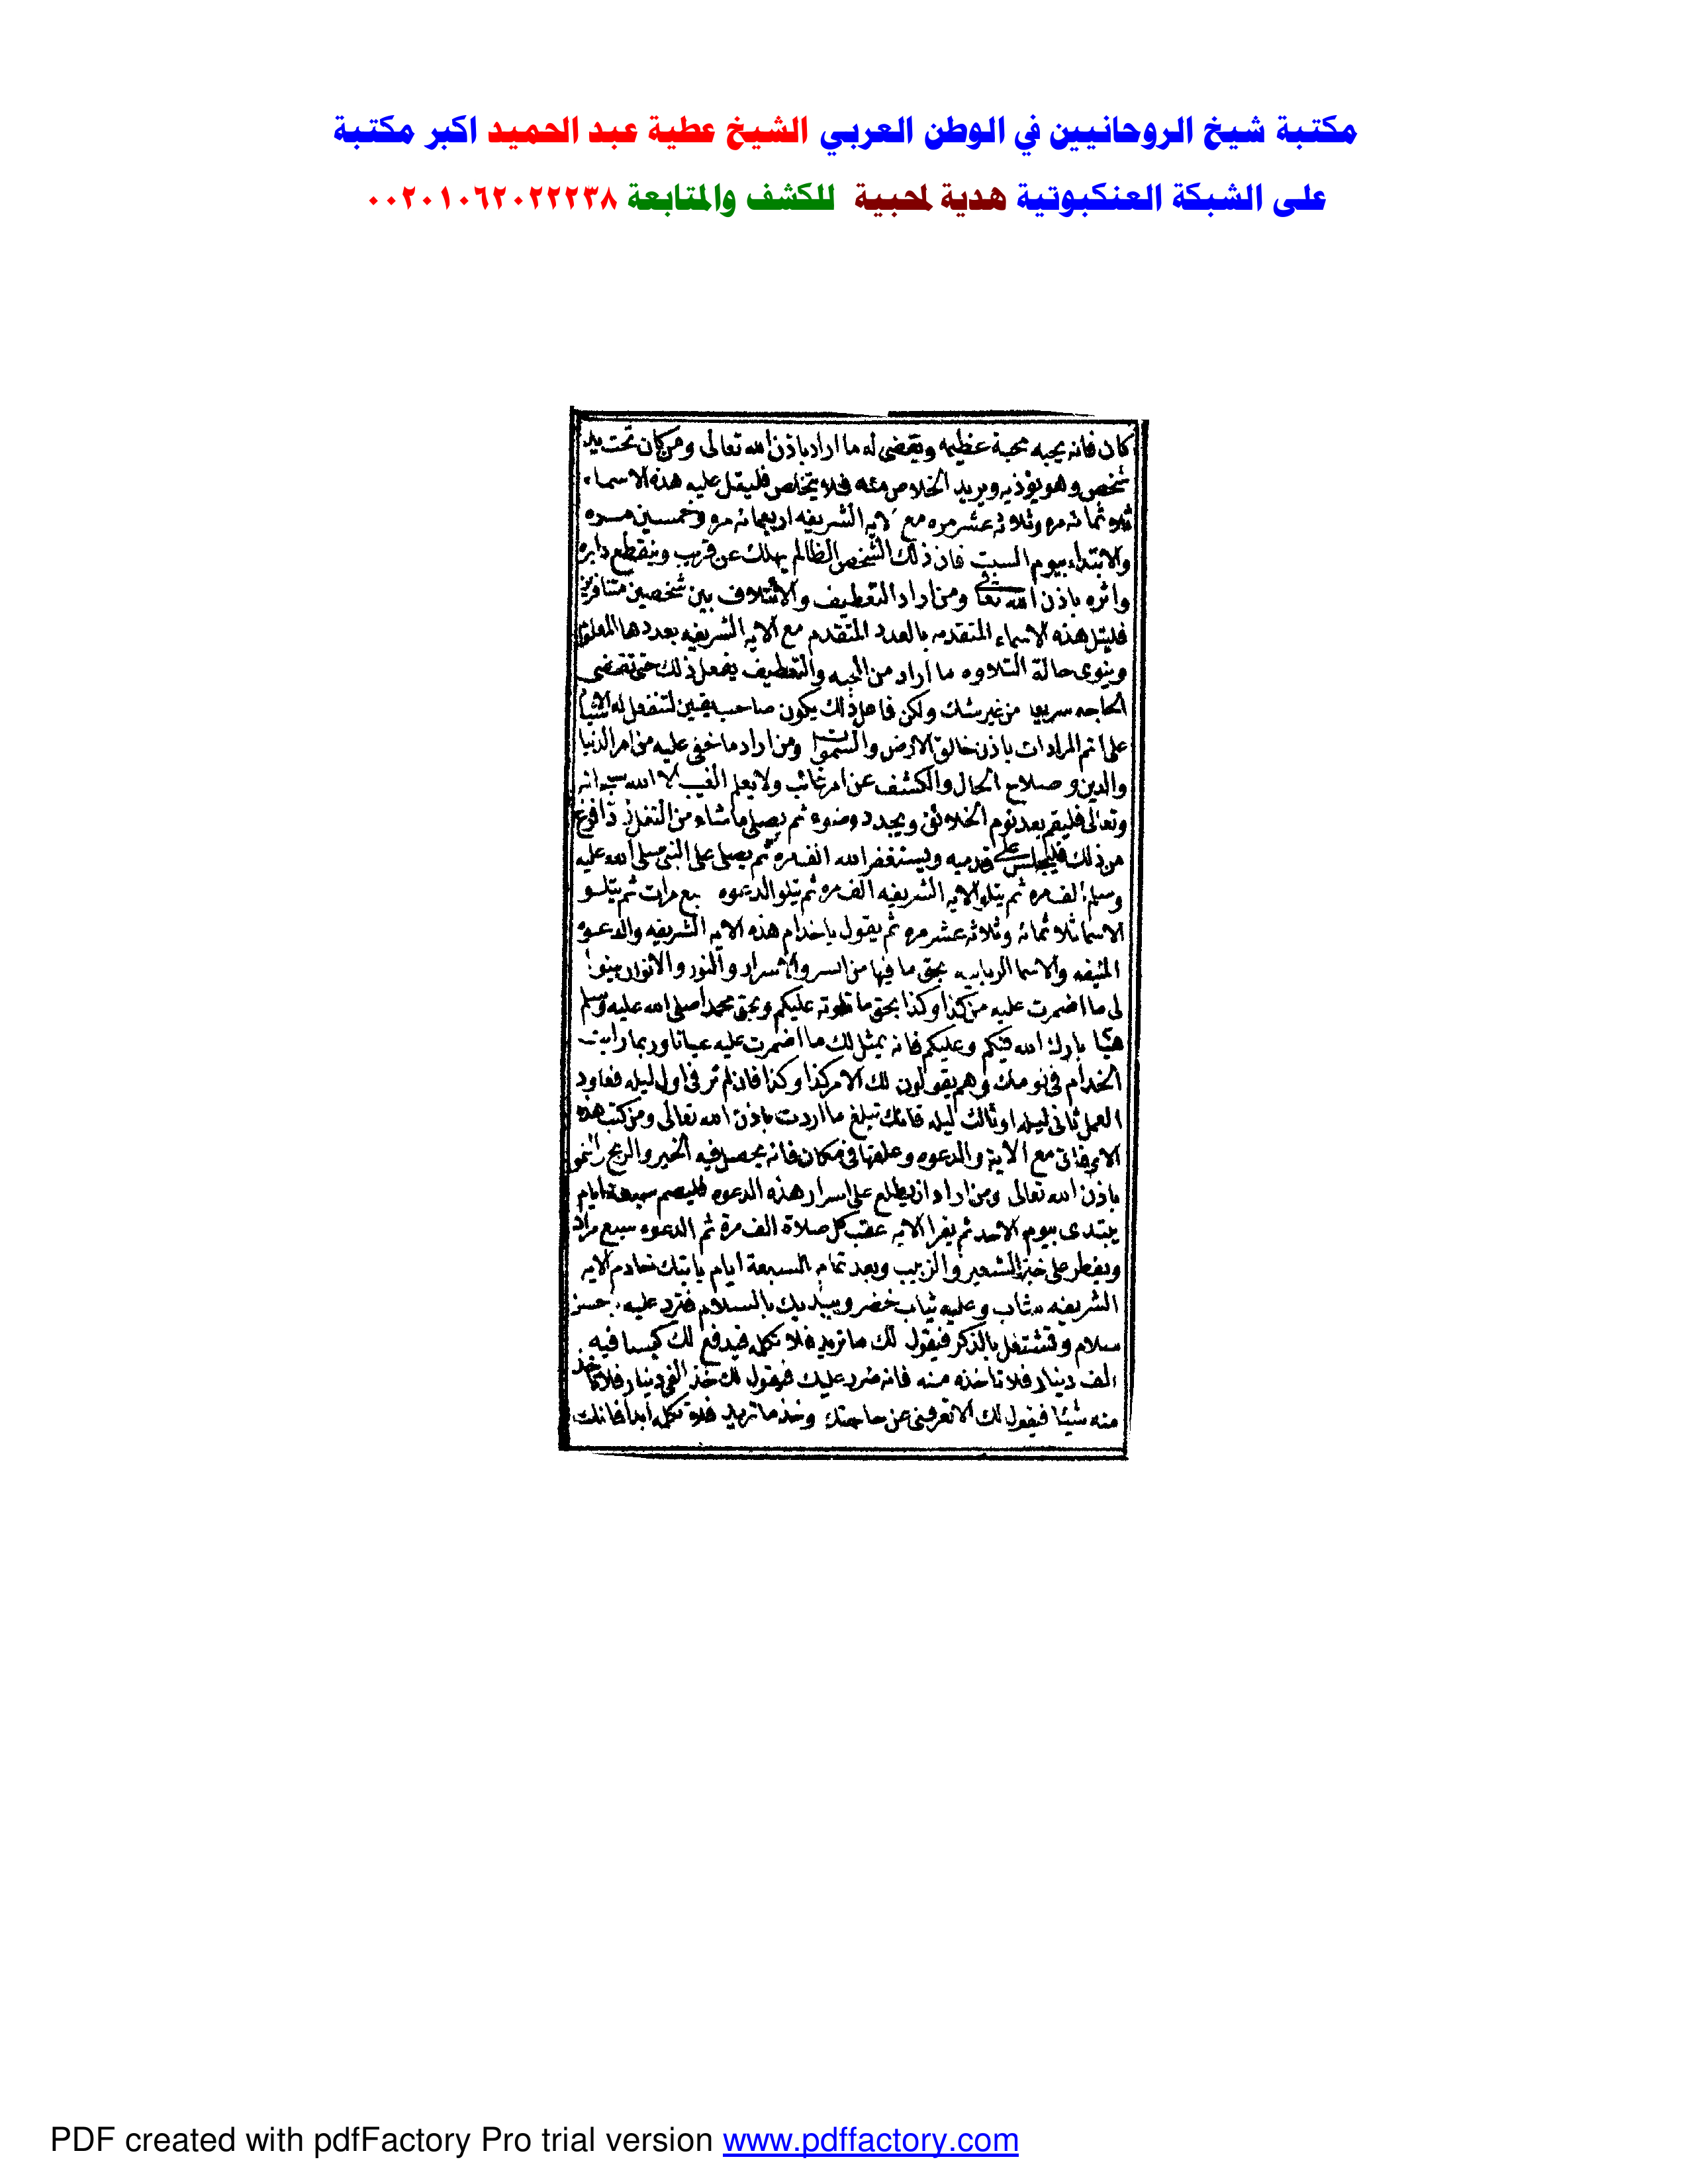 مكتبة شيخ الروحانيين في الوطن العربي الشيخ عطية عبد الحميد اكبر مكتبة
على الشبكة العنكبوتية هدية لمحبية للكشف والمتابعة ٠٠٢٠١٠٦٢٠٢٢٢٣٨
كان فانه يحبه محبة عظيمه ويقضى له ما اراد باذن الله تعالى ومن كان تحت يد
شخص وهو يؤذيه ويريد الخلاص منه فلا يتخلص فليتل عليه هذه الاسماء
ثلاثمائه مره وثلاثه عشر مره مع الايه الشريفه اربعمائه مره وخمسين مره
والابتداء بيوم السبت فان ذلك الشخص الظالم يهلك عن قريب وينقطع دابره
واثره باذن الله تعالى ومن اراد التعطيف والائتلاف بين شخصين متنافرين
فليتل هذه الاسماء المتقدمه بالعدد المتقدم مع الايه الشريفه بعددها المعلوم
وينوى حالة التلاوه ما اراد من المحبه والتعطيف يفعل ذلك حتى تقضى
الحاجه سريعا من غير شك ولكن فاعل ذلك يكون صاحب يقين لتنفعل له الاشيا
على اتم المرادات باذن خالق الارض والسموات ومن اراد ما خفى عليه من امر الدنيا
والدين وصلاح الحال والكشف عن امر غائب ولا يعلم الغيب الا الله سبحانه
وتعالى فليقم بعد نوم الخلائق ويجدد وضوء ثم يصلى ما شاء من النفل فاذا فرغ
من ذلك فليجلس على قدميه ويستغفر الله الف مره ثم يصلى على النبى صلى الله عليه
وسلم الف مره ثم يتلو الايه الشريفه الف مره ثم يتلو الدعوه سبع مرات ثم يتلو
الاسما ثلاثمائه وثلاثه عشر مره ثم يقول ياخدام هذه الايه الشريفه والدعوه
المنيفه والاسما الربانيه بحق ما فيها من السر والاسرار والنور والانوار بينوا
لى ما اضمرت عليه من كذا وكذا بحق ما تلوته عليكم وبحق محمد صلى الله عليه وسلم
هيا بارك الله فيكم وعليكم فانه يمثل لك ما اضمرت عليه عيانا وربما رايت
الخدام فى نومك وهم يقولون لك الامر كذا وكذا فان لم تر فى اول ليله فعاود
العمل ثانى ليله او ثالث ليله فانك تبلغ ما اردت باذن الله تعالى ومن كتب هذه
الاوفاق مع الاية والدعوه وعلقها فى مكان فانه يحصل فيه الخير والربح والنمو
باذن الله تعالى ومن اراد ان يطلع على اسرار هذه الدعوه فليصم سبعة ايام
يبتدى بيوم الاحد ثم يقرا الايه عقب كل صلاة الف مرة ثم الدعوه سبع مرات
ويفطر على خبز الشعير والزبيب وبعد تمام السبعة ايام ياتيك خادم الايه
الشريفه شاب وعليه ثياب خضر ويبديك بالسلام فترد عليه احسن
سلام وتشتغل بالذكر فيقول لك ما تريد فلا تكلمه فيدفع لك كيسا فيه
الف دينار فلا تاخذه منه فانه يرد عليك فيقول لك خذ الفى دينار فلا تاخذ
منه شيئا فيقول لك الا تعرفنى عن حاجتك وخذ ما تريد فلا تكلمه ابدا فانك
PDF created with pdfFactory Pro trial version www.pdffactory.com